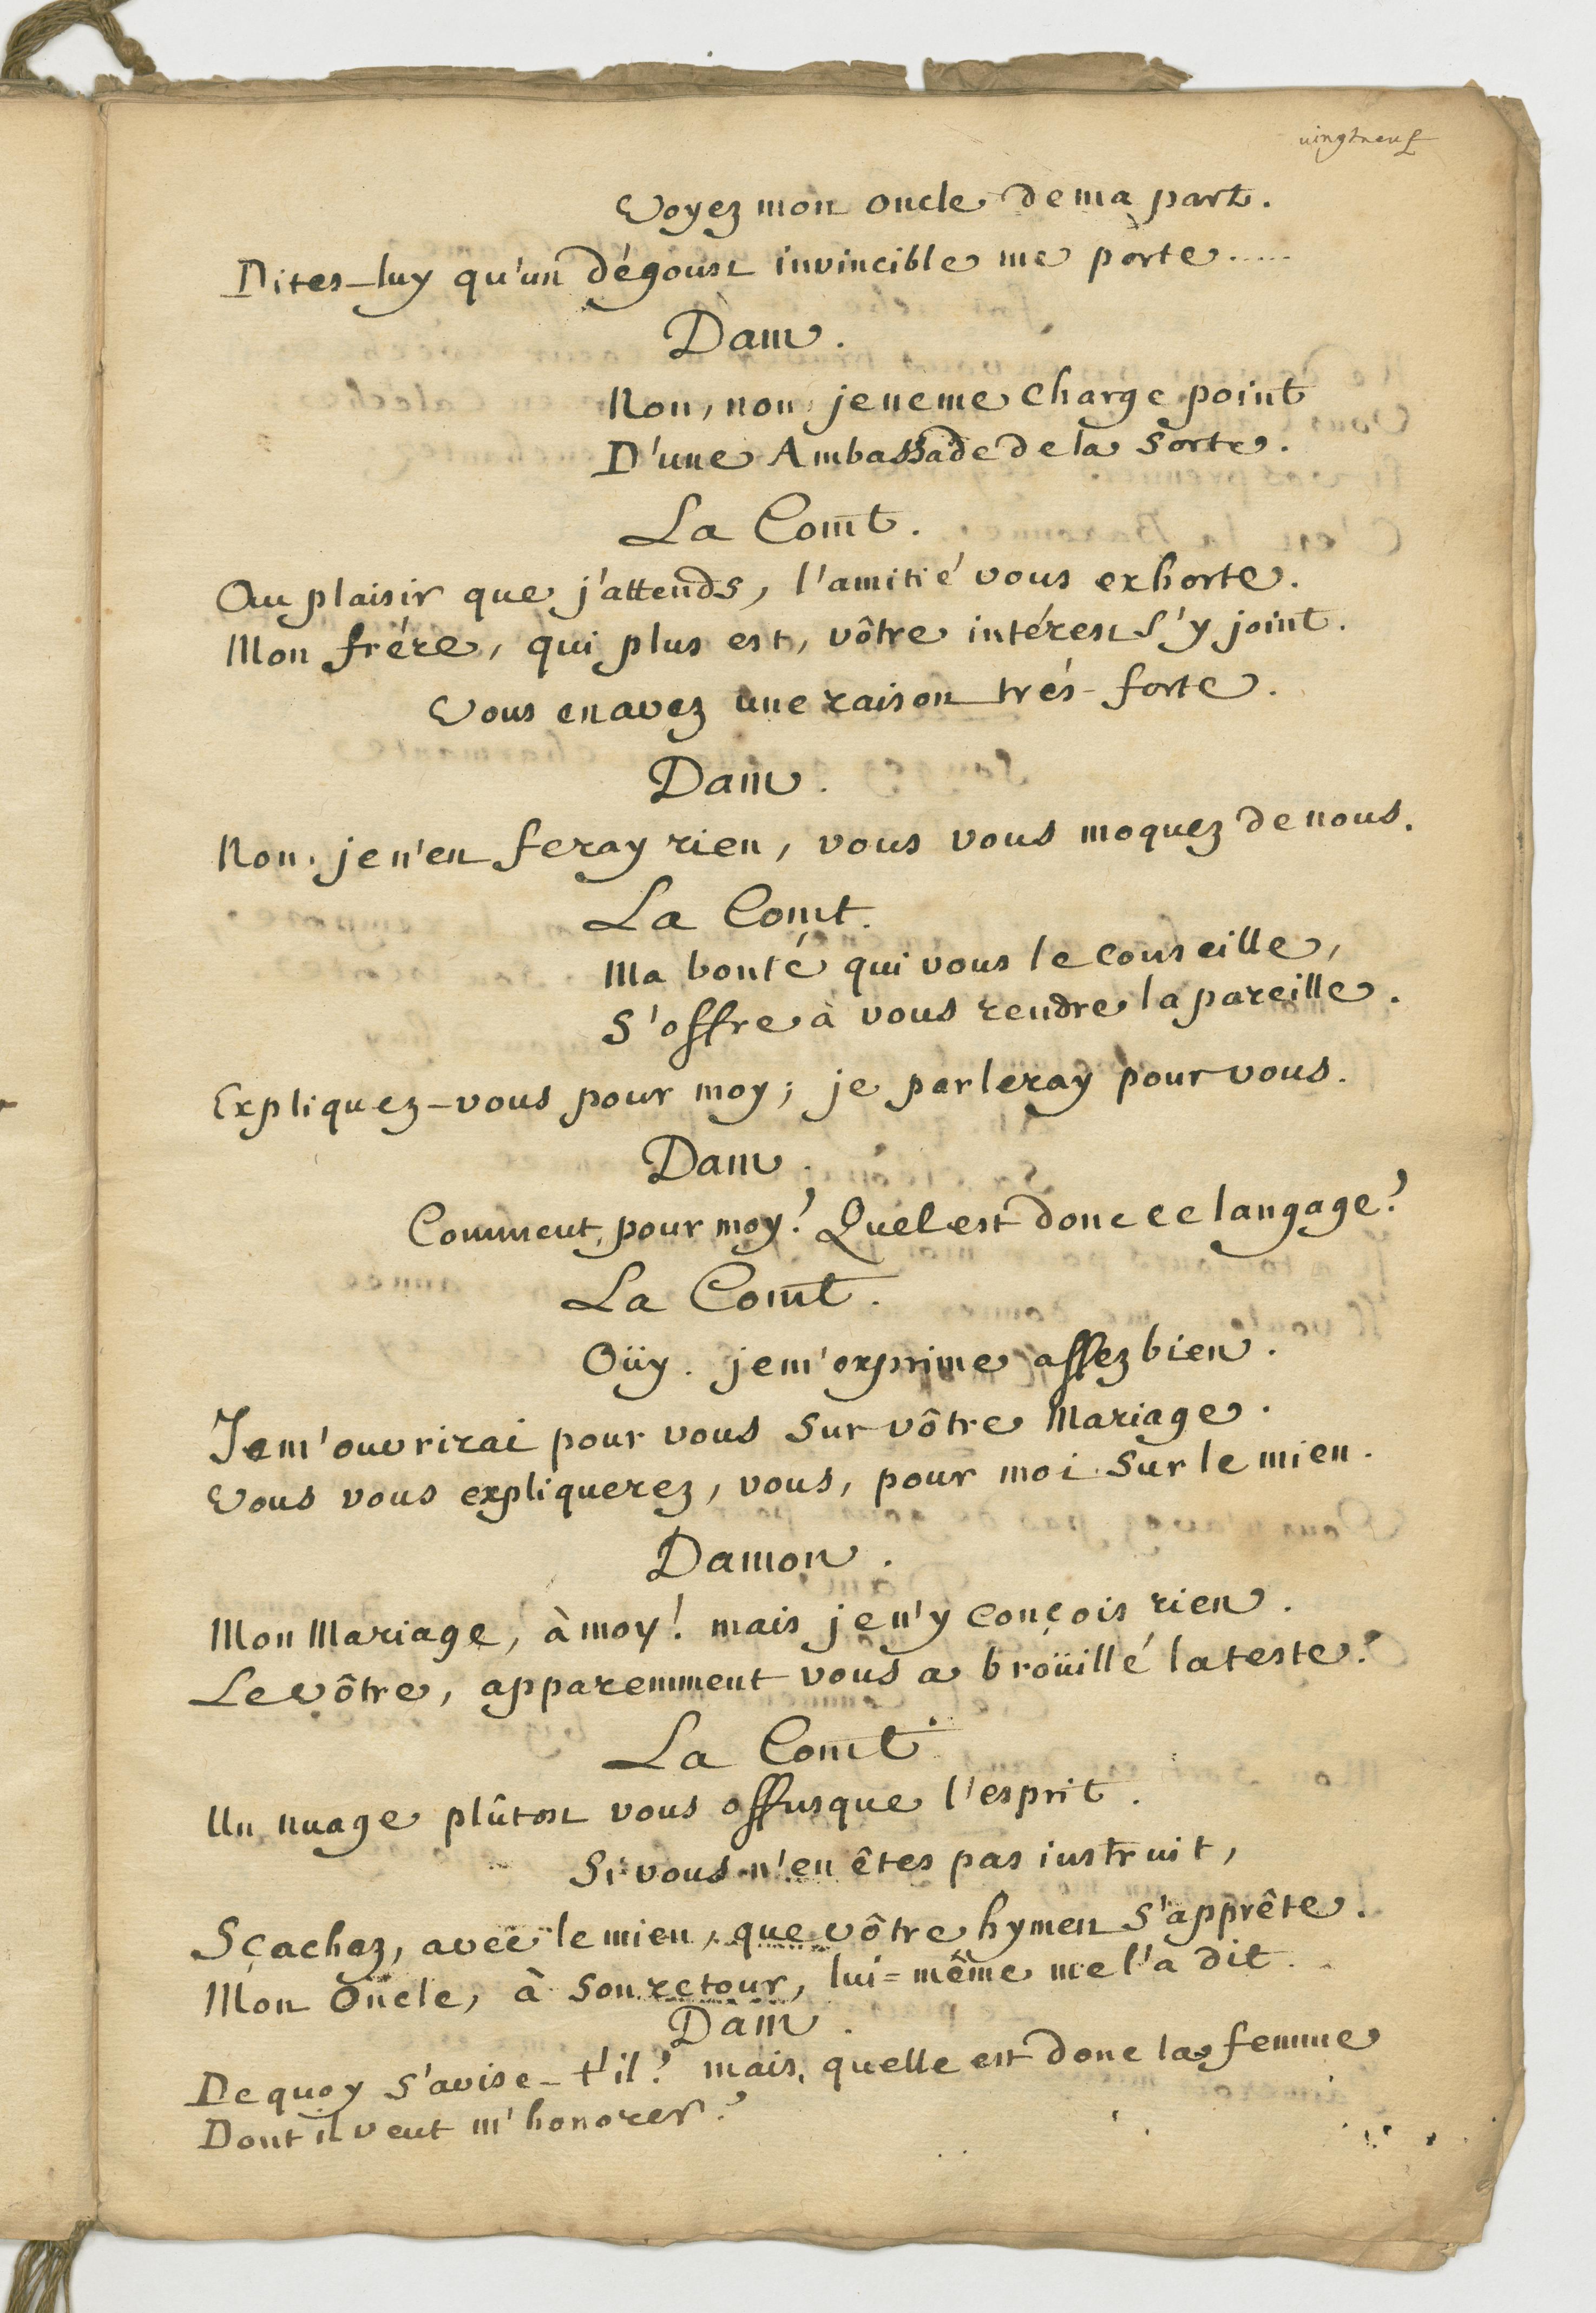 vingtneuf
Voyez mon oncle de ma part.
Dites-luy qu'un dégoust invincible me porte.....
Dam.
Non, non, je ne me charge point
D'une Ambassade de la sorte.
La Comt.
Au plaisir que j'attends, l'amitié vous exhorte.
Mon frére, qui plus est, vôtre intérest s'y joint.
Vous en avez une raison trés-forte.
Dam.
Non. je n'en feray rien, vous vous moquez de nous.
La Comt.
Ma bonté qui vous le conseille,
S'offre à vous rendre la pareille.
Expliquez-vous pour moy; je parleray pour vous.
Dam.
Comment, pour moy! Quel est donc ce langage?
La Comt.
Oüy. je m'exprime assez bien.
Je m'ouvrirai pour vous sur vôtre Mariage.
Vous vous expliquerez, vous, pour moi sur le mien.
Damon.
Mon Mariage, à moy! mais je n'y conçois rien.
Le vôtre, apparemment vous a broüillé la teste?
La Comt.
Un nuage plûtost vous offusque l'esprit.
Si vous n'en êtes pas instruit,
Sçachez, avec le mien, que vôtre hymen s'apprête.
Mon Oncle, à son retour, lui=même me l'a dit.
Dam.
De quoy s'avise-t'il? mais, quelle est donc la femme
Dont il veut m'honorer?